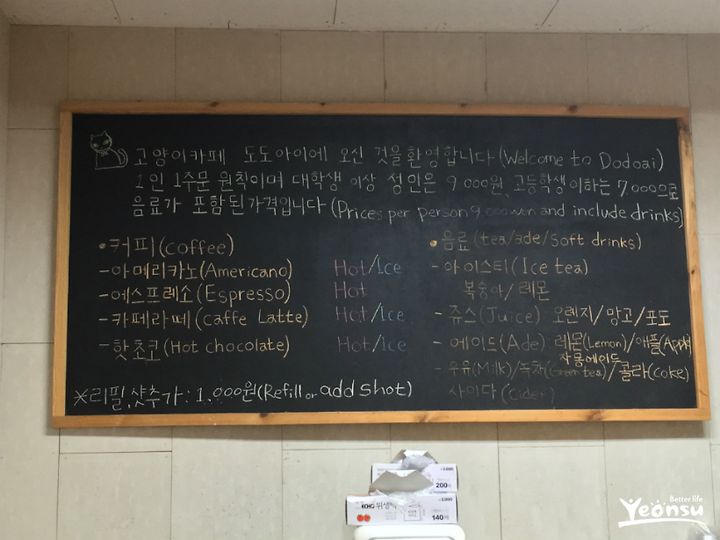 고양이카페 도도아이에 오신 것을 환영합니다 (Welcome to Dodoai)
1인 1주문 원칙이며 대학생 이상 성인은 9,000원, 고등학생 이하는 7,000으로
음료가 포함된 가격입니다 (Prices per person 9,000 won and include drinks)
• 커피 (coffee)
- 아메리카노 (Americano) Hot/Ice
- 에스프레소 (Espresso) Hot
- 카페라떼 (caffe Latte) Hot/Ice
- 핫쵸코 (Hot chocolate) Hot/Ice
※리필,샷추가 : 1,000원 (Refill or add shot)
• 음료 (tea/ade/Soft drinks)
- 아이스티 (Ice tea)
복숭아/레몬
- 쥬스 (Juice) 오렌지/망고/포도
- 에이드 (Ade) 레몬(Lemon)/애플(Apple)
자몽에이드
- 우유(Milk)/녹차(Green tea)/콜라(coke)
사이다 (Cider)
200
140
Better life
Yeonsu